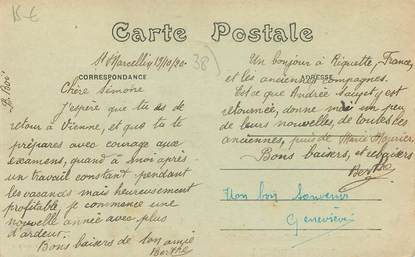 15 €
Carte Postale
St Marcellin 15/10/20.
38
CORRESPONDANCE
Chère Sémoine
J'espère que tu es de
retour à Vienne, et que tu te
prépares avec courage aux
examens, quand à moi après
un travail constant pendant
les vacances mais heureusement
profitable, je commence une
nouvelle année avec plus
d'ardeur.
Bons baisers de ton amie
Berthe
Un bonjour à Riquette, France,
et les anciennes compagnes.
ADRESSE
Est ce que Andrée Sauget y est
retournée, donne moi un peu
de leurs nouvelles de toutes les
anciennes, puis de Marie Mounier.
Bons baisers, et rebaisers
Berthe
Mon bon Souvenir
Geneviève